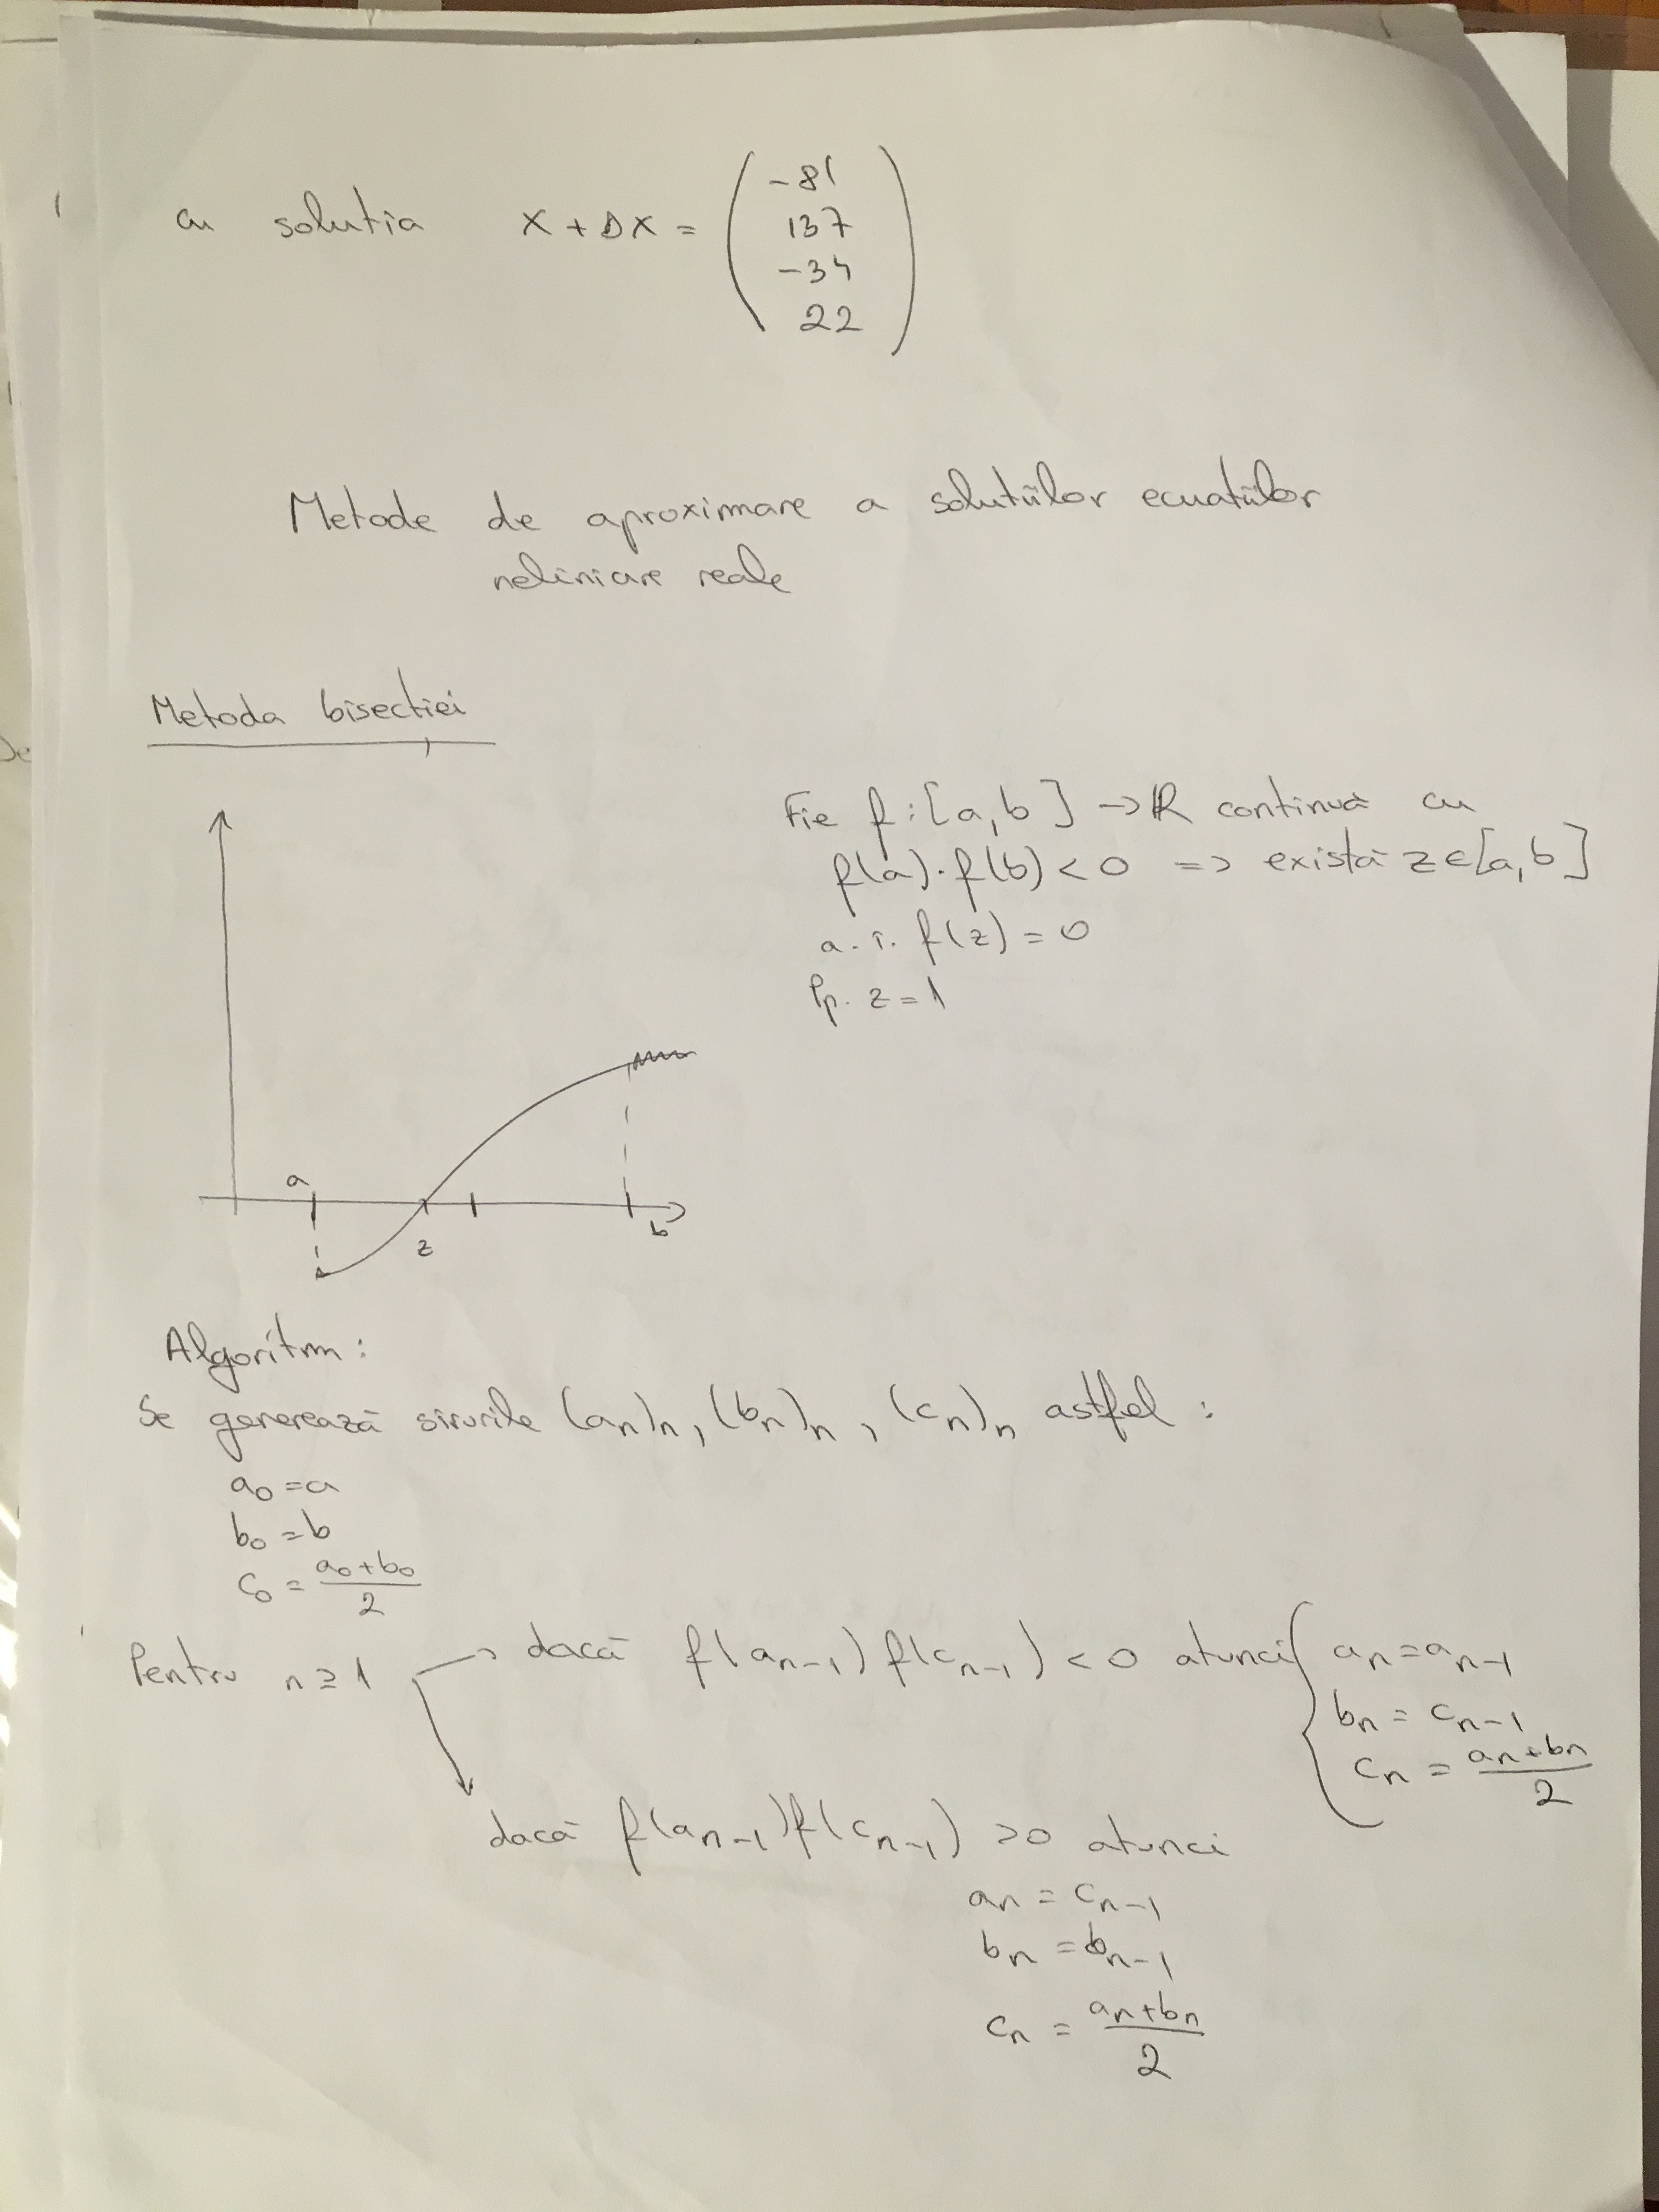 cu solutia X + ΔX = ( -81 137 -34 22 )
Metode de aproximare a solutiilor ecuatiilor
neliniare reale
Metoda bisecției
Fie f : [a, b] → R continuă cu
f(a) · f(b) < 0 => există z ∈ [a, b]
a. î. f(z) = 0
Pp. z = 1
a
z
b
Algoritm :
Se generează sirurile (an)n, (bn)n, (cn)n astfel :
a0 = a
b0 = b
c0 = (a0 + b0) / 2
Pentru n ≥ 1 → dacă f(an-1) f(cn-1) < 0 atunci { an = an-1
bn = cn-1
cn = (an + bn) / 2
dacă f(an-1) f(cn-1) > 0 atunci
an = cn-1
bn = bn-1
cn = (an + bn) / 2